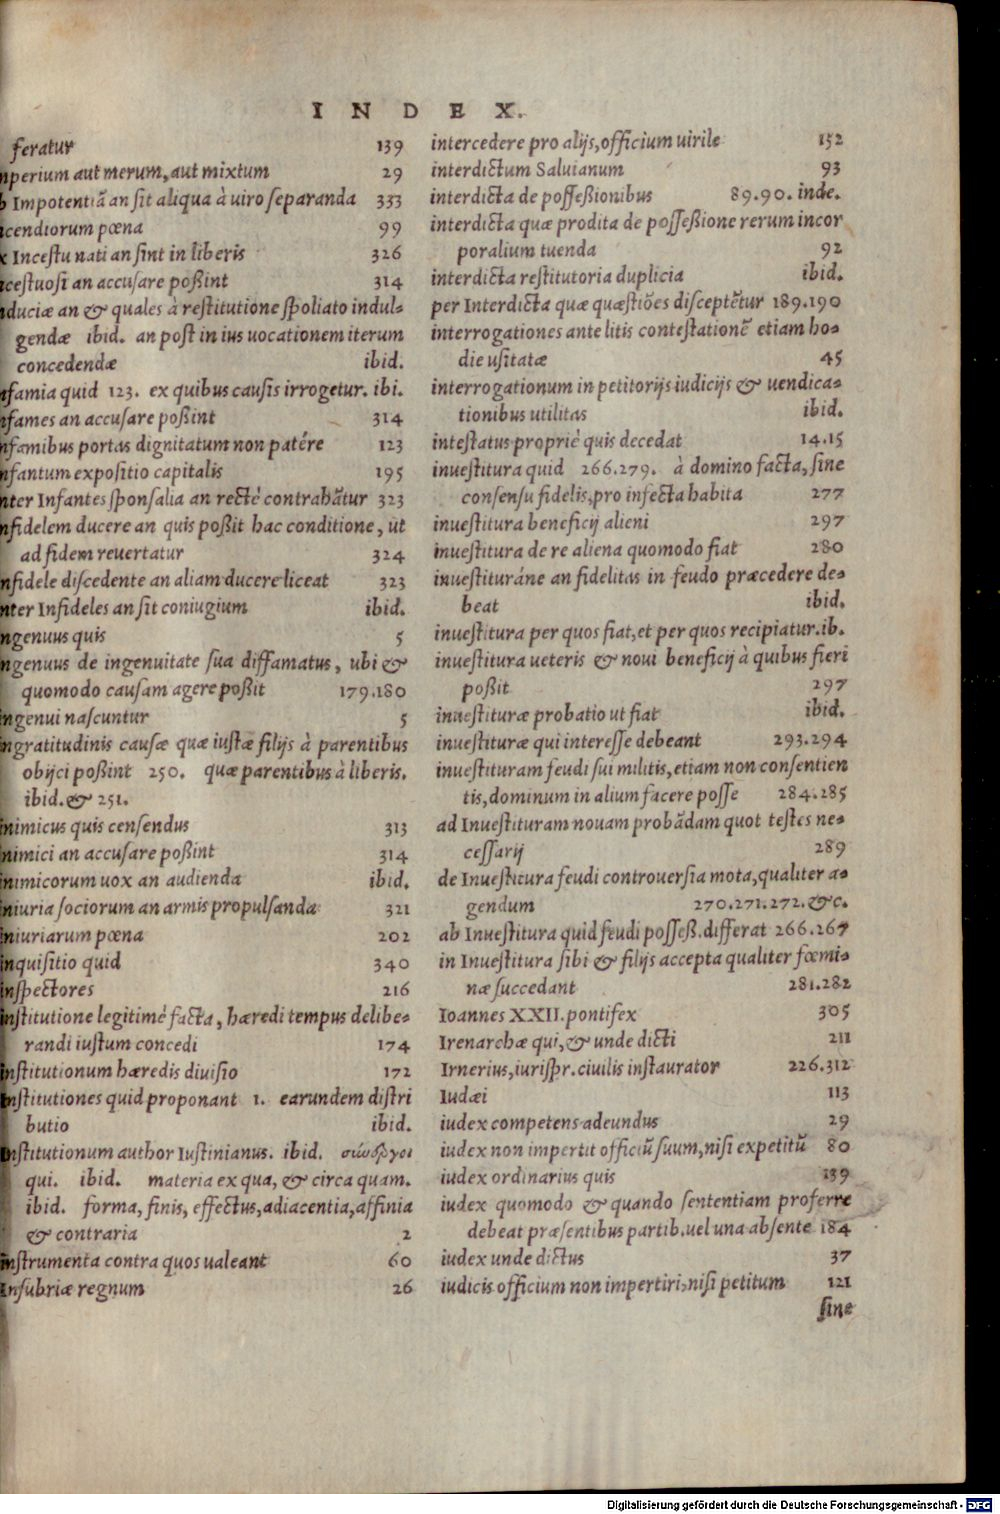 INDEX.
feratur 139
nperium aut merum, aut mixtum 29
b Impotentiā an sit aliqua à uiro separanda 333
ncendiorum pœna 99
x Incestu nati an sint in liberis 326
ncestuosi an accusare poßint 314
nduciæ an & quales à restitutione spoliato indul-
gendæ ibid. an post in ius uocationem iterum
concedendæ ibid.
nfamia quid 123. ex quibus causis irrogetur. ibi.
nfames an accusare poßint 314
nfamibus portas dignitatum non patére 123
nfantum expositio capitalis 195
nter Infantes sponsalia an rectè contrahātur 323
nfidelem ducere an quis poßit hac conditione, ut
ad fidem reuertatur 324
nfidele discedente an aliam ducere liceat 323
nter Infideles an sit coniugium ibid.
ngenuus quis 5
ngenuus de ingenuitate sua diffamatus, ubi &
quomodo causam agere poßit 179.180
ingenui nascuntur 5
ingratitudinis causæ quæ iustæ filijs à parentibus
obijci poßint 250. quæ parentibus à liberis.
ibid. & 251.
inimicus quis censendus 313
inimici an accusare poßint 314
inimicorum uox an audienda ibid.
iniuria sociorum an armis propulsanda 321
iniuriarum pœna 202
inquisitio quid 340
inspectores 216
institutione legitimè facta, hæredi tempus delibe-
randi iustum concedi 174
institutionum hæredis diuisio 172
institutiones quid proponant 1. earundem distri
butio ibid.
institutionum author Iustinianus. ibid. σύνεργοι
qui. ibid. materia ex qua, & circa quam.
ibid. forma, finis, effectus, adiacentia, affinia
& contraria 2
instrumenta contra quos ualeant 60
Insubriæ regnum 26
intercedere pro alijs, officium uirile 152
interdictum Saluianum 93
interdicta de possessionibus 89.90. inde.
interdicta quæ prodita de possessione rerum incor
poralium tuenda 92
interdicta restitutoria duplicia ibid.
per Interdicta quæ quæstiões disceptētur 189.190
interrogationes ante litis contestationē etiam ho-
die usitatæ 45
interrogationum in petitorijs iudicijs & uendica-
tionibus utilitas ibid.
intestatus propriè quis decedat 14.15
inuestitura quid 266.279. à domino facta, sine
consensu fidelis, pro infecta habita 277
inuestitura beneficij alieni 297
inuestitura de re aliena quomodo fiat 280
inuestituráne an fidelitas in feudo præcedere de-
beat ibid.
inuestitura per quos fiat, et per quos recipiatur. ib.
inuestitura ueteris & noui beneficij à quibus fieri
poßit 297
inuestituræ probatio ut fiat ibid.
inuestituræ qui interesse debeant 293.294
inuestituram feudi sui militis, etiam non consentien
tis, dominum in alium facere posse 284.285
ad Inuestituram nouam probādam quot testes ne-
cessarij 289
de Inuestitura feudi controuersia mota, qualiter a-
gendum 270.271.272. &c.
ab Inuestitura quid feudi posseß. differat 266.267
in Inuestitura sibi & filijs accepta qualiter fœmi-
næ succedant 281.282
Ioannes XXII. pontifex 305
Irenarchæ qui, & unde dicti 211
Irnerius, iurispr. ciuilis instaurator 226.312
Iudæi 113
iudex competens adeundus 29
iudex non impertit officiū suum, nisi expetitū 80
iudex ordinarius quis 139
iudex quomodo & quando sententiam proferre
debeat præsentibus partib. uel una absente 184
iudex unde dictus 37
iudicis officium non impertiri, nisi petitum 121
sine
Digitalisierung gefördert durch die Deutsche Forschungsgemeinschaft - DFG